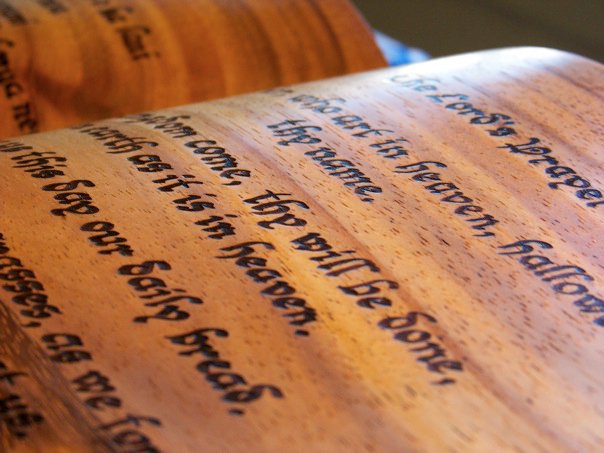 the Lord's Prayer
who art in heaven, hallowe
thy name.
dom come, thy will be done,
arth as it is in heaven.
this day our daily bread.
asses, as we for
st us.